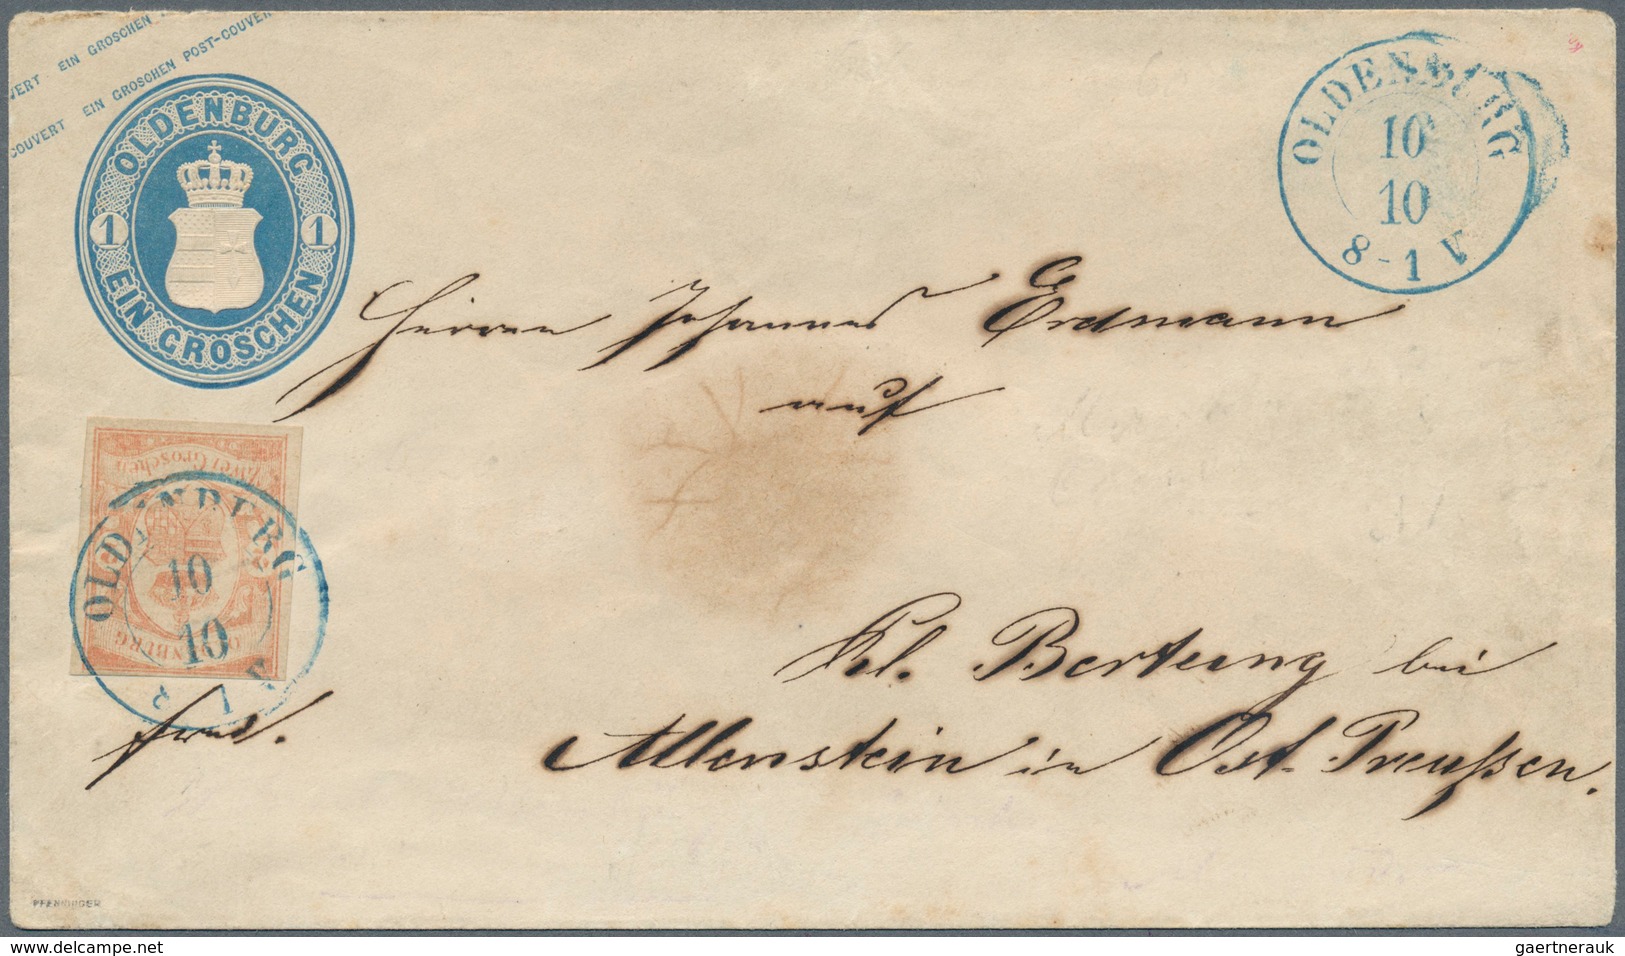 VERT EIN GROSCHEN
COUVERT EIN GROSCHEN POST-COUVER
OLDENBURG
1 1
EIN GROSCHEN
OLDENBURG
10
10
8-1 V
Herrn Johannes Erdmann
auf
Zwei Groschen
OLDENBURG
OLDENBURG
10
10
Kl. Bertung bei
Allenstein in Ost-Preußen.
PFENNINGER
gaertnerauk